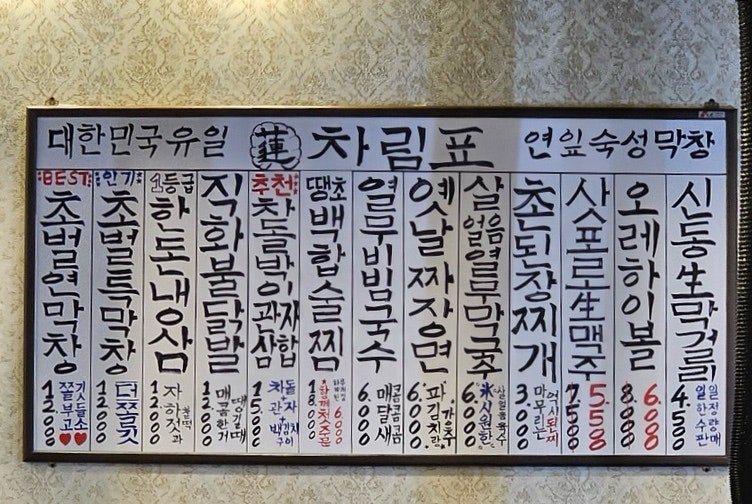 대한민국유일 蓮 차림표 연잎숙성막창
:BEST:
초벌연막창
12.000
쫄깃
부들
고소
:인기:
초벌특막창
12.000
더쫄깃
1등급
한돈냉삼
12.000
자하젓과
찰떡
직화불닭발
12.000
매콤한거
땡길때
추천
차돌박이관자삼합
15.000
차돌
+
관자
+
백김치
구이
땡초백합술찜
18.000
6.000
열무비빔국수
6.000
매콤
달콤
새콤
옛날짜장면
6.000
파김치랑
살얼음열무막국수
6.000
氷 시원한
살얼음육수
촌된장찌개
3.000
마무리는
역시된찌
삿포로生맥주
오레하이볼
8.000
6.000
신동生막걸리
4.500
일일
한정
수량
판매